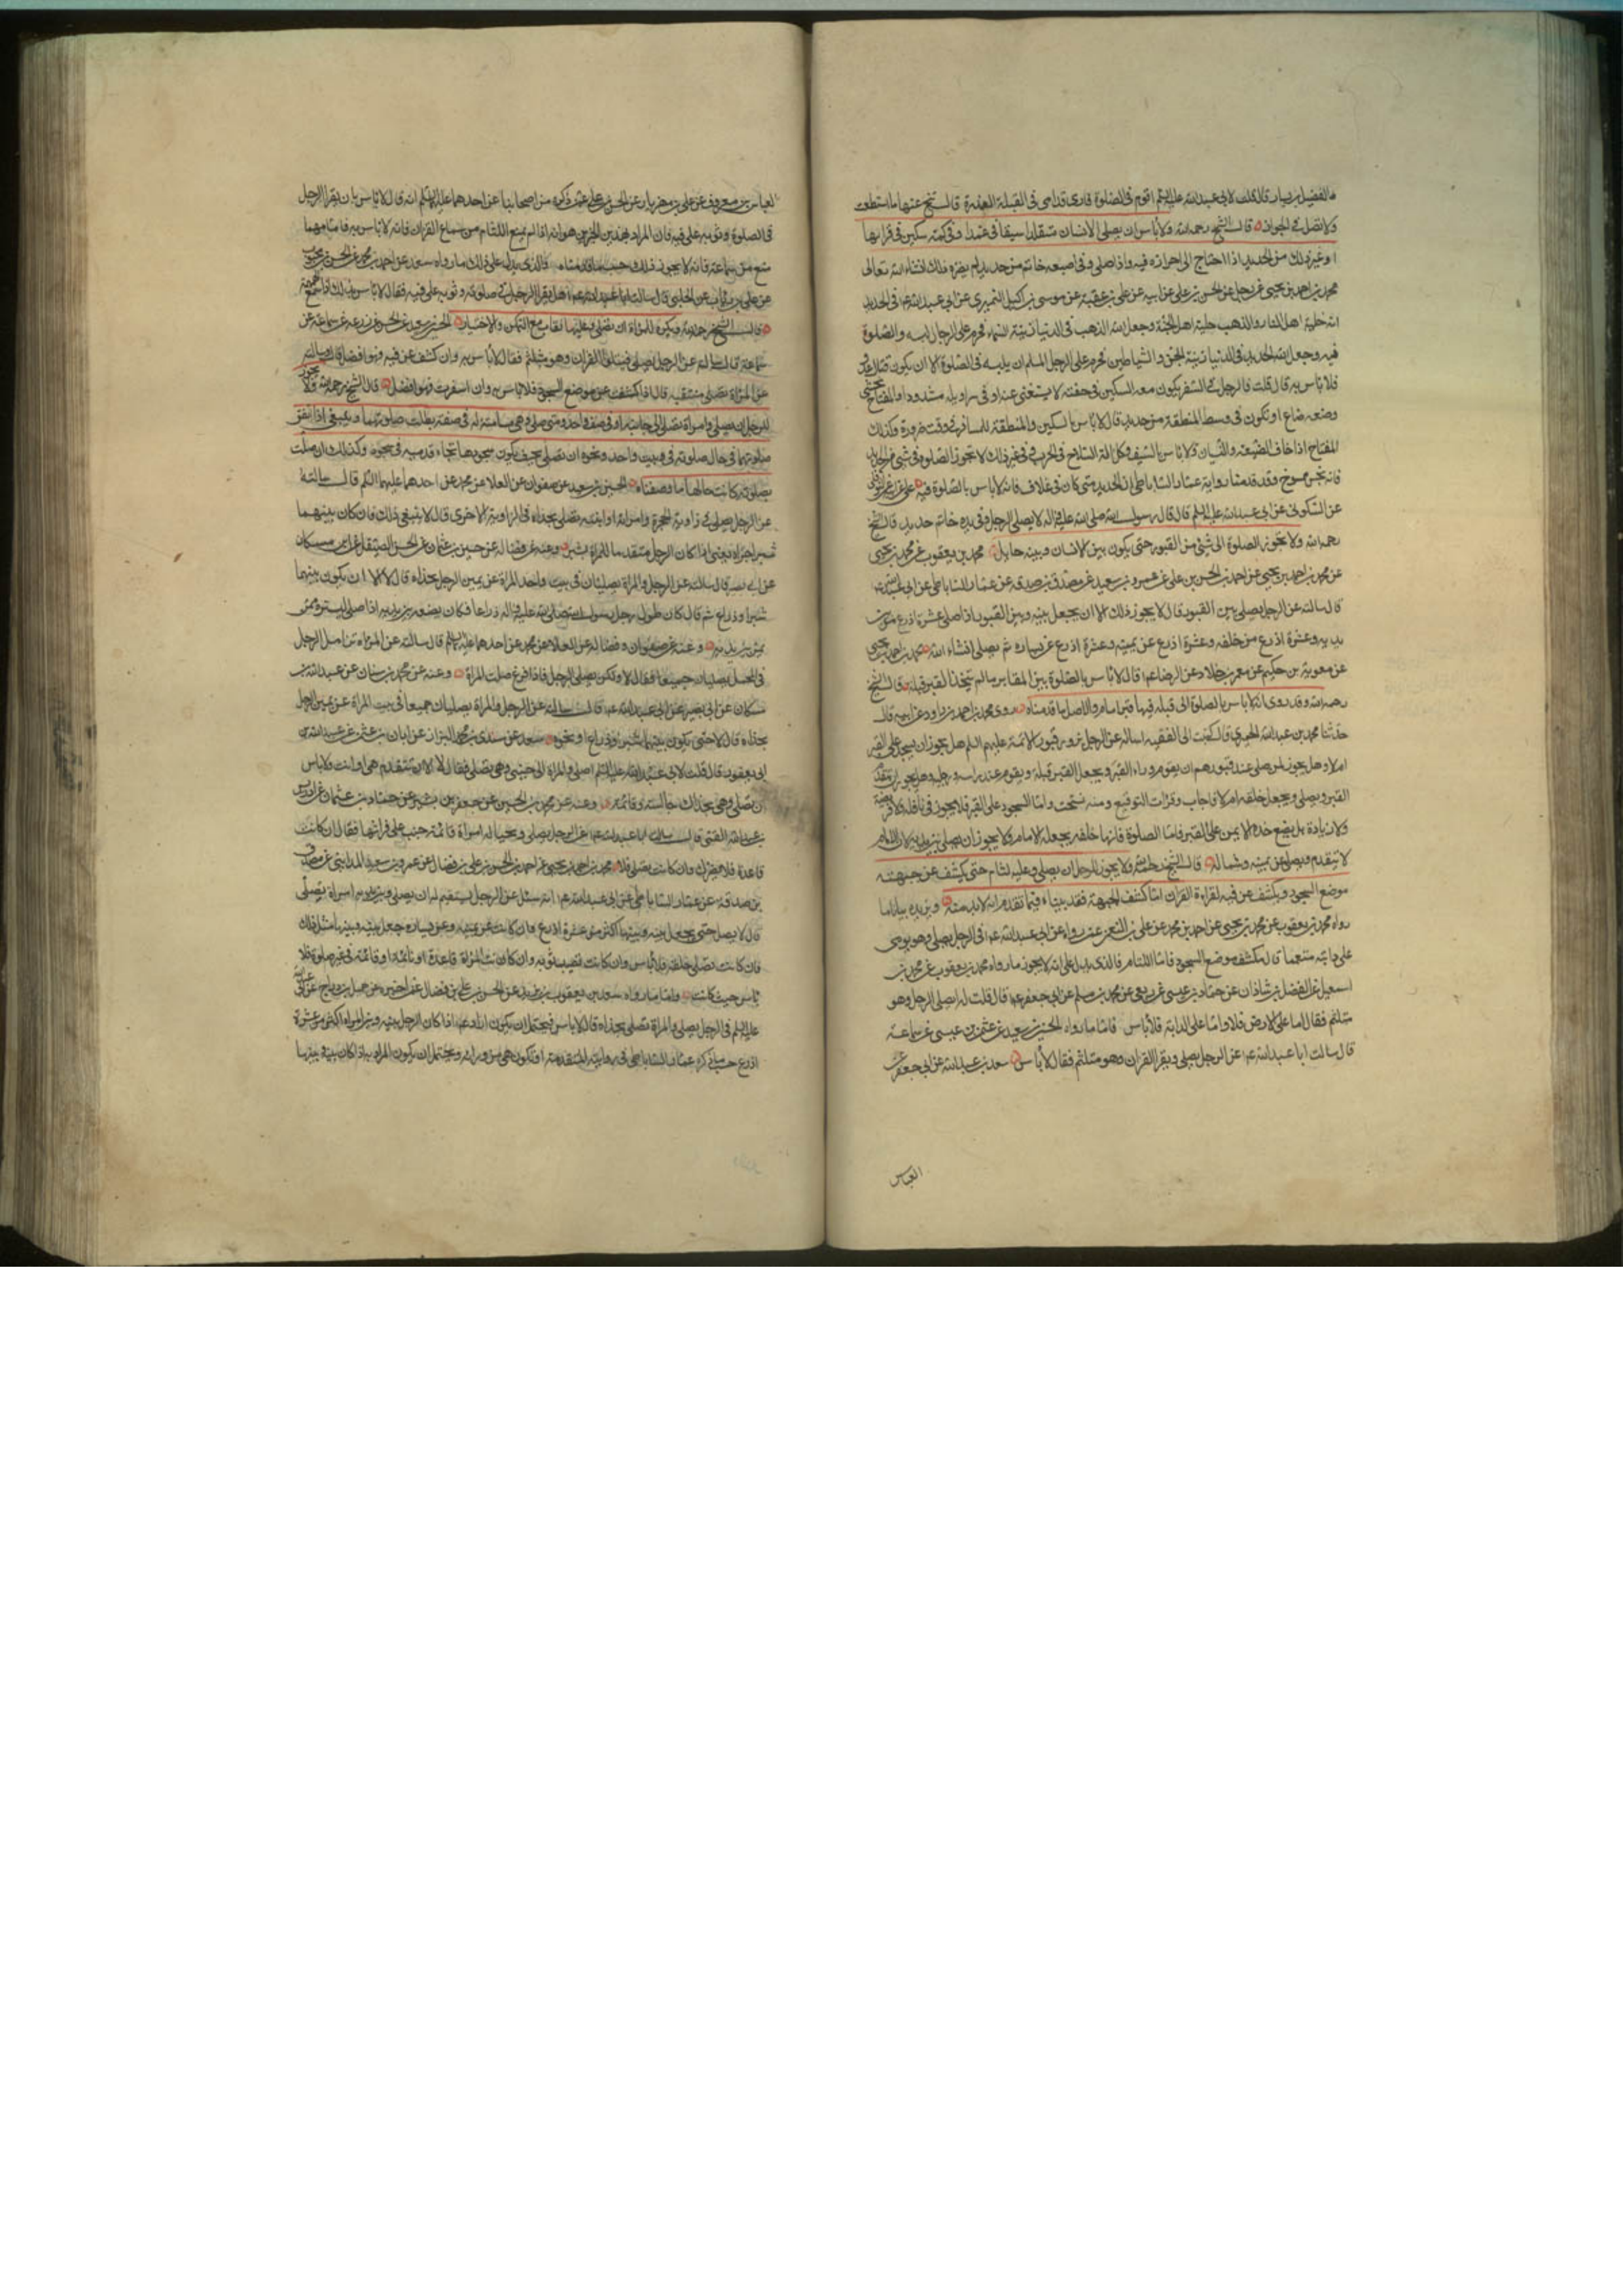 عن الفضيل بن يسار قال قلت لابي عبدالله عليه السلم اقوم فى الصلوة فارى قدامى فى القبلة العذرة قال تنح عنها ما استطعت
ولا تصل على الجواد قال الشيخ رحمه الله ولا بأس ان يصلى الانسان متقلدا سيفا فى غمده او فى كمه سكين فى قرابها
او غير ذلك من الحديد اذا احتاج الى احرازه فيه واذا صلى وفى اصبعه خاتم من حديد لم يضره ذلك انشاء الله تعالى
محمد بن احمد بن يحيى عن رجل عن الحسن بن على عن ابيه عن على بن عقبة عن موسى بن اكيل النميرى عن ابى عبدالله ع فى الحديد
انه حلية اهل النار والذهب حلية اهل الجنة وجعل الله الذهب فى الدنيا زينة النساء فحرم على الرجال لبسه والصلوة
فيه وجعل الله الحديد فى الدنيا زينة الجن والشياطين فحرم على الرجل المسلم ان يلبسه فى الصلوة الا ان يكون قبال عدو
فلا بأس به قال قلت فالرجل فى السفر يكون معه السكين فى خفه لا يستغنى عنه او فى سراويله مشدودا والمفتاح يخشى
وضعه ضاع او يكون فى وسطه المنطقة من حديد قال لا بأس بالسكين والمنطقة للمسافر فى وقت ضرورة وكذلك
المفتاح اذا خاف الضيعة والنسيان ولا بأس بالسيف وكل آلة السلاح فى الحرب وفى غير ذلك لا تجوز الصلوة فى شىء من الحديد
فانه نجس ممسوخ وقد قدمنا رواية عمار الساباطى ان الحديد متى كان فى غلاف فانه لا بأس بالصلوة فيه على عن ابيه عن النوفلى
عن السكونى عن ابى عبدالله عليه السلم قال قال رسول الله صلى الله عليه واله لا يصلى الرجل وفى يده خاتم حديد قال الشيخ
رحمه الله ولا تجوز الصلوة الى شىء من القبور حتى يكون بين الانسان وبينه حايل محمد بن يعقوب عن محمد بن يحيى
عن محمد بن احمد بن يحيى عن احمد بن الحسن بن على عن عمرو بن سعيد عن مصدق بن صدقة عن عمار الساباطى عن ابى عبدالله ع
قال سالته عن الرجل يصلى بين القبور قال لا يجوز ذلك الا ان يجعل بينه وبين القبور اذا صلى عشرة اذرع من بين
يديه وعشرة اذرع من خلفه وعشرة اذرع عن يمينه وعشرة اذرع عن يساره ثم يصلى انشاء الله محمد بن احمد بن يحيى
عن معوية بن حكيم عن معمر بن خلاد عن الرضا ع قال لا بأس بالصلوة بين المقابر ما لم يتخذ القبر قبلة قال الشيخ
رحمه الله وقد روى انه لا بأس بالصلوة الى قبلة فيها قبر امام والاصل ما قدمناه روى محمد بن احمد بن داود عن ابيه قال
حدثنا محمد بن عبدالله الحميرى قال كتبت الى الفقيه اساله عن الرجل يزور قبور الائمة عليهم السلم هل يجوز ان يسجد على القبر
ام لا وهل يجوز لمن صلى عند قبورهم ان يقوم وراء القبر ويجعل القبر قبلة ويقوم عند راسه ورجليه وهل يجوز ان يتقدم
القبر ويصلى ويجعله خلفه ام لا فاجاب وقرات التوقيع ومنه نسخت واما السجود على القبر فلا يجوز فى نافلة ولا فريضة
ولا زيادة بل يضع خده الايمن على القبر فاما الصلوة فانها خلفه يجعله الامام ولا يجوز ان يصلى بين يديه لان الامام
لا يتقدم ويصلى عن يمينه وشماله قال الشيخ رحمه الله ولا يجوز للرجل ان يصلى وعليه لثام حتى يكشف عن جبهته
موضع السجود ويكشف عن فيه لقراءة القران اما كشف الجبهة فقد بيناه فيما تقدم انه لا بد منه ويزيده بيانا ما
رواه محمد بن يعقوب عن محمد بن يحيى عن احمد بن محمد عن على بن النعمن عمن رواه عن ابى عبدالله ع فى الرجل يصلى وهو يومى
على دابته متعمما قال يكشف موضع السجود فاما اللثام فالذى يدل على انه لا يجوز ما رواه محمد بن يعقوب عن محمد بن
اسمعيل عن الفضل بن شاذان عن حماد بن عيسى عن ربعى عن محمد بن مسلم عن ابى جعفر ع قال قلت له ايصلى الرجل وهو
متلثم فقال اما على الارض فلا واما على الدابة فلا بأس فاما ما رواه الحسين بن سعيد عن عثمن بن عيسى عن سماعة
قال سالت ابا عبدالله ع عن الرجل يصلى ويقرا القران وهو متلثم فقال لا بأس سعد بن عبدالله عن ابى جعفر عن
العباس
العباس بن معروف عن على بن مهزيار عن الحسن بن على عمن ذكره من اصحابنا عن احدهما عليهما السلم انه قال لا بأس بان يقرا الرجل
فى الصلوة وثوبه على فيه فان المراد بهذين الخبرين هو انه اذا لم يمنع اللثام من سماع القران فانه لا بأس به فاما مهما
منع من سماعه فانه لا يجوز ذلك وحسب ما قدمناه والذى يدل على ذلك ما رواه سعد عن احمد بن محمد عن الحسن بن محبوب
عن على بن رئاب عن الحلبى قال سالت ابا عبدالله ع هل يقرا الرجل فى صلوته وثوبه على فيه فقال لا بأس بذلك اذا سمع الهمهمة
قال الشيخ رحمه الله ويكره للمراة ان تصلى وعليها نقاب مع التمكن والاختيار الحسين بن سعيد عن الحسن عن زرعة عن سماعة عن
سماعة قال سالته عن الرجل يصلى فيتلو القران وهو متلثم فقال لا بأس به وان كشف عن فيه فهو افضل قال وسالته
عن المراة تصلى متنقبة قال اذا كشفت عن موضع السجود فلا بأس به وان اسفرت فهو افضل قال الشيخ رحمه الله ولا يجوز
للرجل ان يصلى وامراة تصلى الى جانبه او فى صف واحد ومتى صلى وهى مسامتة له فى صفه بطلت صلوتهما وينبغى اذا اتفق
صلوتهما فى حال صلوته فى بيت واحد ونحوه ان تصلى بحيث يكون سجودها تجاه قدميه فى سجوده وكذلك ان صلت
بصلوته كانت حالها ما وصفناه الحسين بن سعيد عن صفوان عن العلا عن محمد عن احدهما عليهما السلم قال سالته
عن الرجل يصلى فى زاوية الحجرة وامراته او ابنته تصلى بحذاه فى الزاوية الاخرى قال لا ينبغى ذلك فان كان بينهما
شبر اجزاه يعنى اذا كان الرجل متقدما للمراة بشبر وعنه عن فضالة عن حسين بن عثمان عن الحسن الصيقل عن ابن مسكان
عن ابى بصير قال سالته عن الرجل والمراة يصليان فى بيت واحد المراة عن يمين الرجل بحذاه قال لا الا ان يكون بينهما
شبر او ذراع ثم قال كان طول رحل رسول الله صلى الله عليه واله ذراعا فكان يضعه بين يديه اذا صلى ليستره ممن
يمر بين يديه وعنه عن صفوان وفضالة عن العلا عن محمد عن احدهما عليهما السلم قال سالته عن المراة تزامل الرجل
فى المحمل يصليان جميعا فقال لا ولكن يصلى الرجل فاذا فرغ صلت المراة وعنه عن محمد بن سنان عن عبدالله بن
مسكان عن ابى بصير عن ابى عبدالله ع قال سالته عن الرجل والمراة يصليان جميعا فى بيت المراة عن يمين الرجل
بحذاه قال لا حتى يكون بينهما شبر او ذراع او نحوه سعد عن سندى بن محمد البزاز عن ابان بن عثمن عن عبدالله بن
ابى يعفور قال قلت لابى عبدالله عليه السلم اصلى والمراة الى جنبى وهى تصلى فقال لا الا ان تتقدم هى او انت ولا بأس
ان تصلى وهى بحذاك جالسة وقائمة وعنه عن محمد بن الحسين عن جعفر بن بشير عن حماد بن عثمان عن ادريس
بن عبدالله القمى قال سالت ابا عبدالله ع عن الرجل يصلى وبحياله امراة قائمة جنب على فراشها فقال ان كانت
قاعدة فلا يضرك وان كانت تصلى فلا محمد بن احمد بن يحيى عن احمد بن الحسن بن على بن فضال عن عمرو بن سعيد المدائنى عن مصدق
بن صدقة عن عمار الساباطى عن ابى عبدالله ع انه سئل عن الرجل يستقيم له ان يصلى وبين يديه امراة تصلى
قال لا يصلى حتى يجعل بينه وبينها اكثر من عشرة اذرع وان كانت عن يمينه وعن يساره جعل بينه وبينها مثل ذلك
فان كانت تصلى خلفه فلا بأس وان كانت تصيب ثوبه وان كانت المراة قاعدة او نائمة او قائمة فى غير صلوة فلا
بأس حيث كانت واما ما رواه سعد بن يعقوب بن يزيد عن الحسن بن على بن فضال عمن اخبره عن جميل بن دراج عن ابى عبدالله
عليه السلم فى الرجل يصلى والمراة تصلى بحذاه قال لا بأس فيحتمل ان يكون اراد ع اذا كان الرجل بينه وبين المراة اكثر من عشرة
اذرع حسب ما ذكره عمار الساباطى فى روايته المتقدمة او تكون هى من ورائه ويحتمل ان يكون المراد به اذا كان بينه وبينها